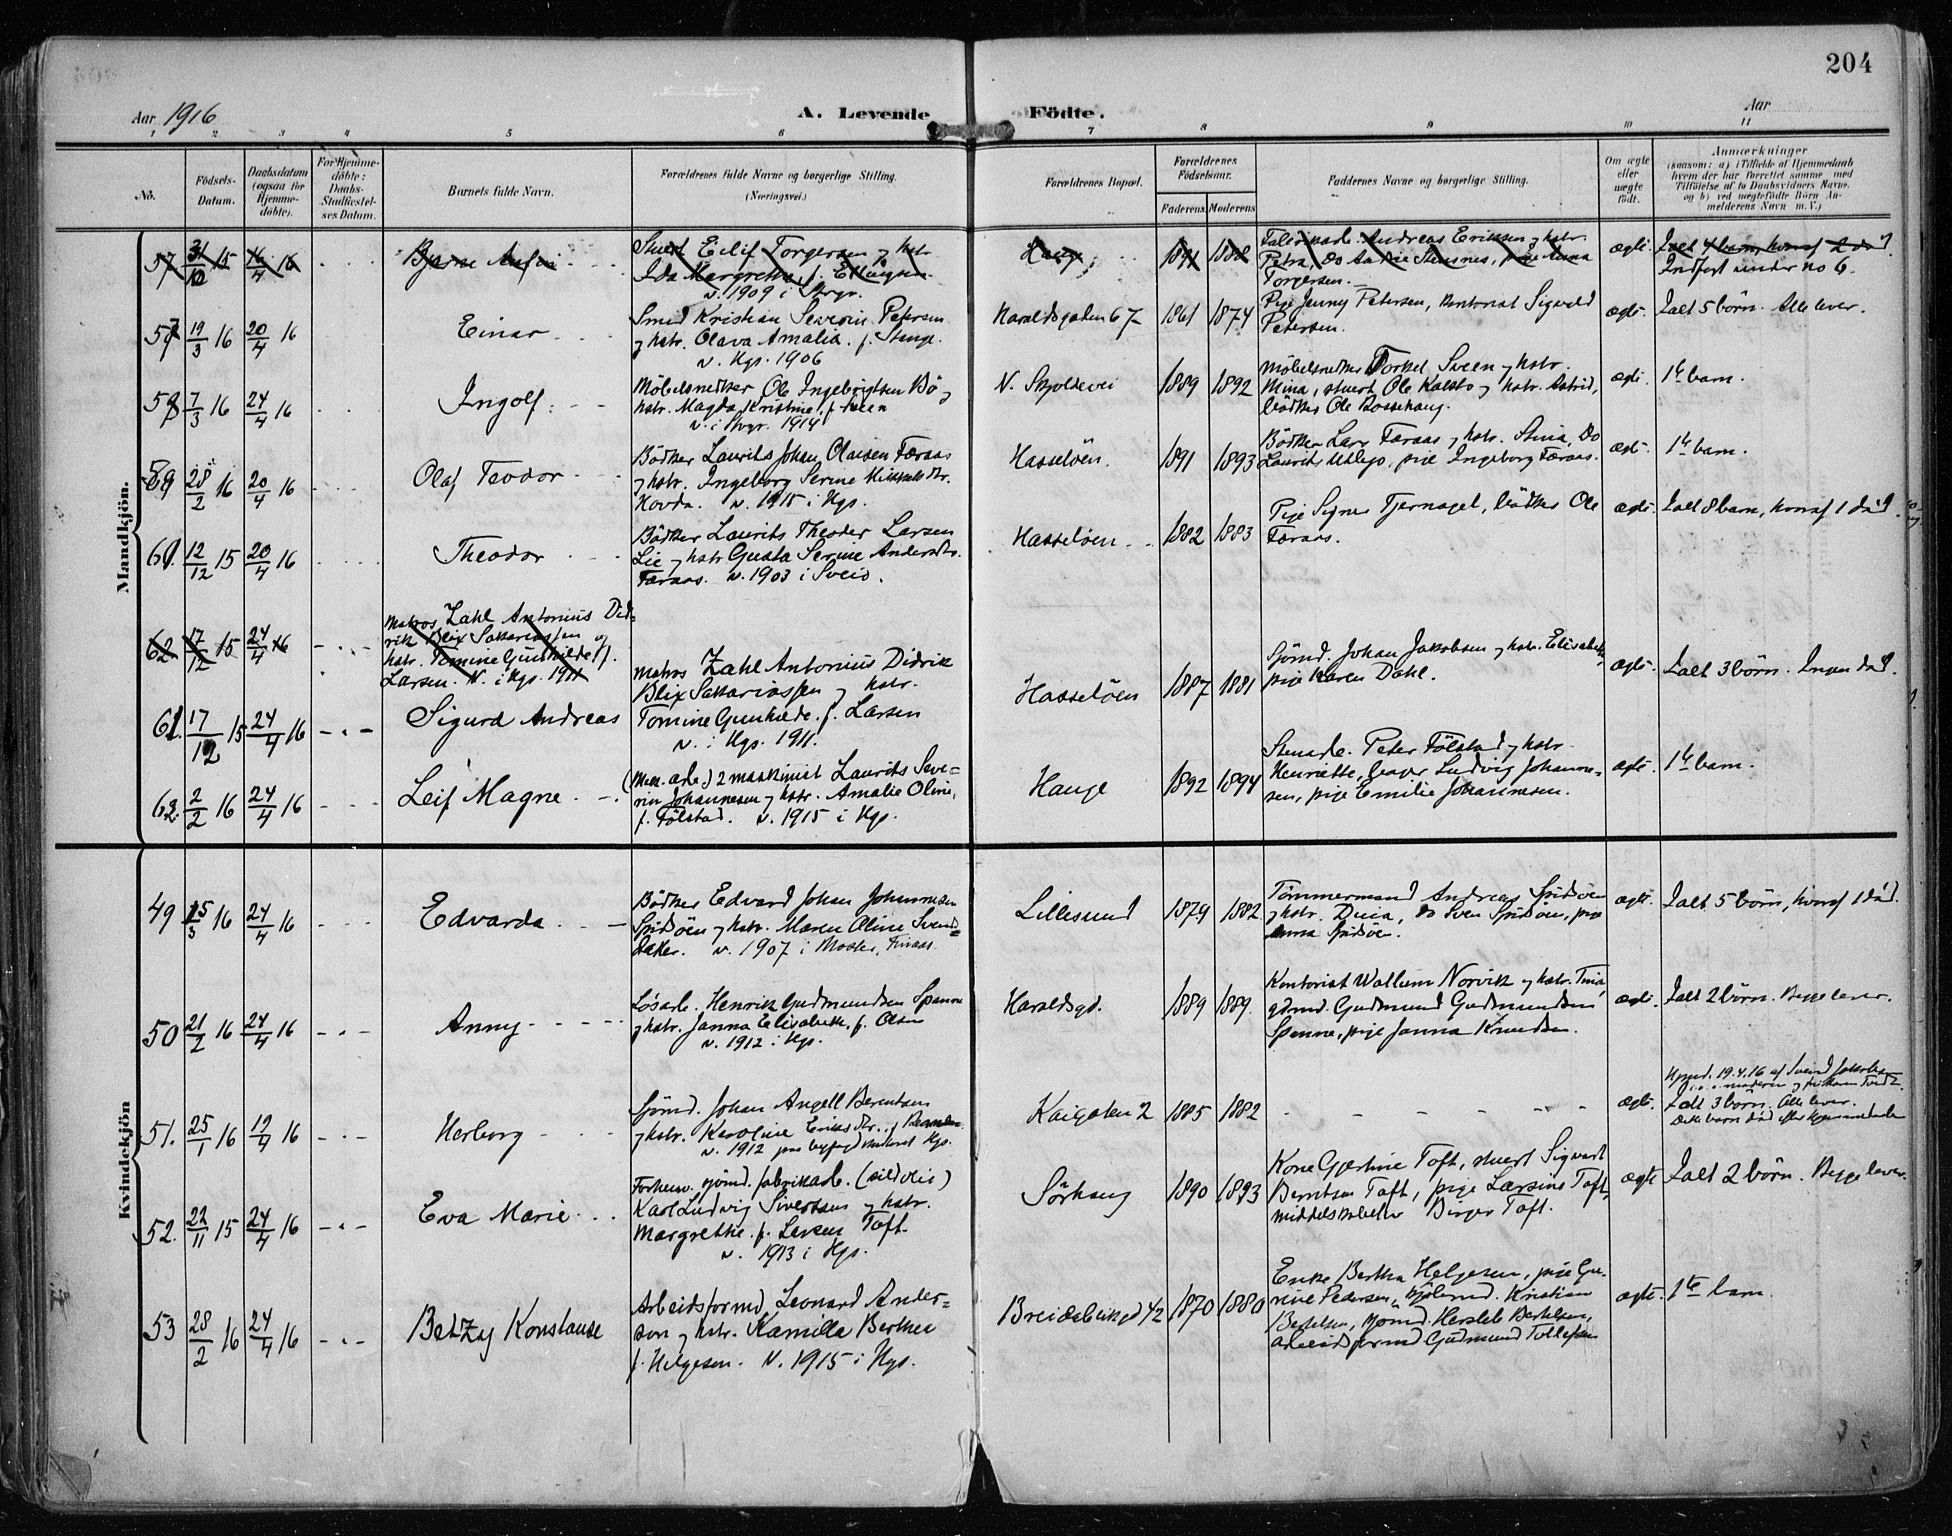 204
Aar 1916
A. Levende Födte.
Aar
1 2 3 4 5 6 7 8 9 10 11
No.
Födsels-Datum.
Daabsdatum (ogsaa for Hjemmedöbte).
For Hjemmedöbte: Daabs-Stadfæstelses Datum.
Barnets fulde Navn.
Forældrenes fulde Navne og borgerlige Stilling.
(Næringsvei.)
Forældrenes Bopæl.
Forældrenes Födselsaar.
Faderens. Moderens
Faddernes Navne og borgerlige Stilling.
Om ægte eller uægte födt.
Anmærkninger
(saasom: a) i Tilfælde af Hjemmedaab
hvem der har forrettet samme med
Tilföielse af to Daabsvidners Navne,
og b) ved uægtefödte Börn An-
melderens Navn m. V.)
Mandkjön.
57 31/10 15 16/4 16
Bjarne
Stuert Eilif Torgersen og hstr.
Ida Margrethe f. Ellingsen
v. 1909 i Hvgr.
Hauge
1891 1888
Fabrikarb. Andreas Eriksen og hstr.
Petra, Do
Torgersen.
ægte
Ialt 4 barn, hvoraf 2 död
Indført under no 6.
57 19/3 16 20/4 16
Einar
Smed Kristian Severin Petersen
og hstr. Olava Amalia f. Stange.
v. Hgs. 1906
Haraldsgaten 67
1861 1874
Pige Jenny Petersen, Kontorist Sigvald
Petersen.
ægte.
Ialt 5 börn. Alle lever.
58 7/3 16 24/4 16
Ingolf
Möbelsnedker Ole Ingebrigtsen Bö og
hstr. Magda Kristine f. Sveen
v. i Hvgr. 1914
N. Skjoldevei
1889 1892
Möbelsnedker Torkel Sveen og hstr.
Mina, stuert Ole Kalstö og hstr. Astrid,
bödker Ole Rossehaug.
ægte
1ste barn.
59 28/2 16 20/4 16
Olaf Teodor
Bödker Laurits Johan Olaisen Færaas
og hstr. Ingeborg Serine Mikkelsdtr.
Hovda. v. 1915 i Hgs.
Hasselöen.
1891 1893
Bödker Lars Færaas og hstr. Stina, Do
Laurits Utlejo, pige Ingeborg Færaas.
ægte.
1ste barn.
60. 12/12 15 20/4 16
Theodor
Bödker Laurits Theodor Larsen
Lie og hstr Gusta Serine Andersdtr.
Færaas. v. 1903 i Sveio.
Hasselöen
1882 1883
Pige Signe Tjernagel, bödker Ole
Færaas.
ægte.
Ialt 8 barn, hvoraf 1 död.
62 17/12 15 24/4 16
Matros Zahl Antonius Did-
rik Blix Sakariassen og
hstr. Tomine Gunhilde f.
Larsen. v. i Hgs. 1911
61. 17/12 15 24/4 16
Sigurd Andreas
Matros Zahl Antonius Didrik
Blix Sakariassen og hstr.
Tomine Gunhilde f. Larsen
v. i Hgs. 1911.
Hasselöen
1887 1881
Sjömd. Johan Jakobsen og hstr. Elisabeth,
pige Karen Dahl.
ægte.
Ialt 3 börn. Ingen död.
62. 2/2 16 24/4 16
Leif Magne
(Mek. arb.) 2 maskinist Laurits Seve=
rin Johannesen og hstr. Amalie Oline,
f. Fölstad. v. 1915 i Hgs.
Hauge
1892 1894
Stenarb. Peter Fölstad og hstr.
Henriette, bager Ludvig Johanne-
sen, pige Emilie Johannesen.
ægte.
1ste barn.
Kvindekjön
49 15/3 16 24/4 16
Edvarda
Bödker Edvard Johan Johannesen
Spidsöen og hstr. Maren Oline Svend=
saker. v. 1907 i Moster, Finaas.
Lillesund
1879 1882
Tömmermand Andreas Spidsöen
og hstr. Dina, do Sven Spidsöen, pige
Anna Spidsöen.
ægte.
Ialt 5 börn, hvoraf 1 död.
50 21/2 16 24/4 16
Anny
Lösarb. Henrik Gudmundsen Spanne
og hstr. Janna Elisabeth f. Olsen
v. 1912 i Hgs.
Haraldsgd.
1889 1889.
Kontorist Wallum Norvik og hstr. Tina,
gdmd. Gudmund Gudmundsen
Spanne, pige Janna Knudsen.
ægte.
Ialt 2 börn. Begge lever.
51. 25/1 16 19/4 16
Herborg
Sjömd. Johan Angell Berentsen
og hstr. Karoline Eriksdtr. f. Berntsen.
v. 1912 paa byfogdkontoret Hgs.
Kaigaten 2
1885 1882
ægte.
Hjmd. 19.4.16 af Svend Jakobsen
Ialt 3 börn. Alle lever.
Dette barn död efter hjemmedaaben
52. 22/11 15 24/4 16
Eva Marie
Forhenv. sjömd. fabrikarb. (sildolie)
Karl Ludvig Sivertsen og hstr.
Margrethe f. Larsen Toft.
v. 1913 i Hgs.
Sörhaug
1890 1893
Kone Gjertine Toft, stuert Sigvart
Berntsen Toft, pige Larsine Toft,
middelskolelev Birger Toft.
ægte
Ialt 2 börn. Begge lever.
53 28/2 16 24/4 16
Betzy Konstanse
Arbeidsformd. Leonard Ander=
sen og hstr. Kamilla Berthea
f. Helgesen. v. 1915 i Hgs.
Breideblikgd 42
1870 1880
Enke Bertha Helgesen, pige Gu-
rine Pedersen, sjömd. Kristian
Bertelsen, sjömd. Hersleb Bertelsen,
arbeidsformd Gudmund Tollefsen
ægte.
1ste barn.